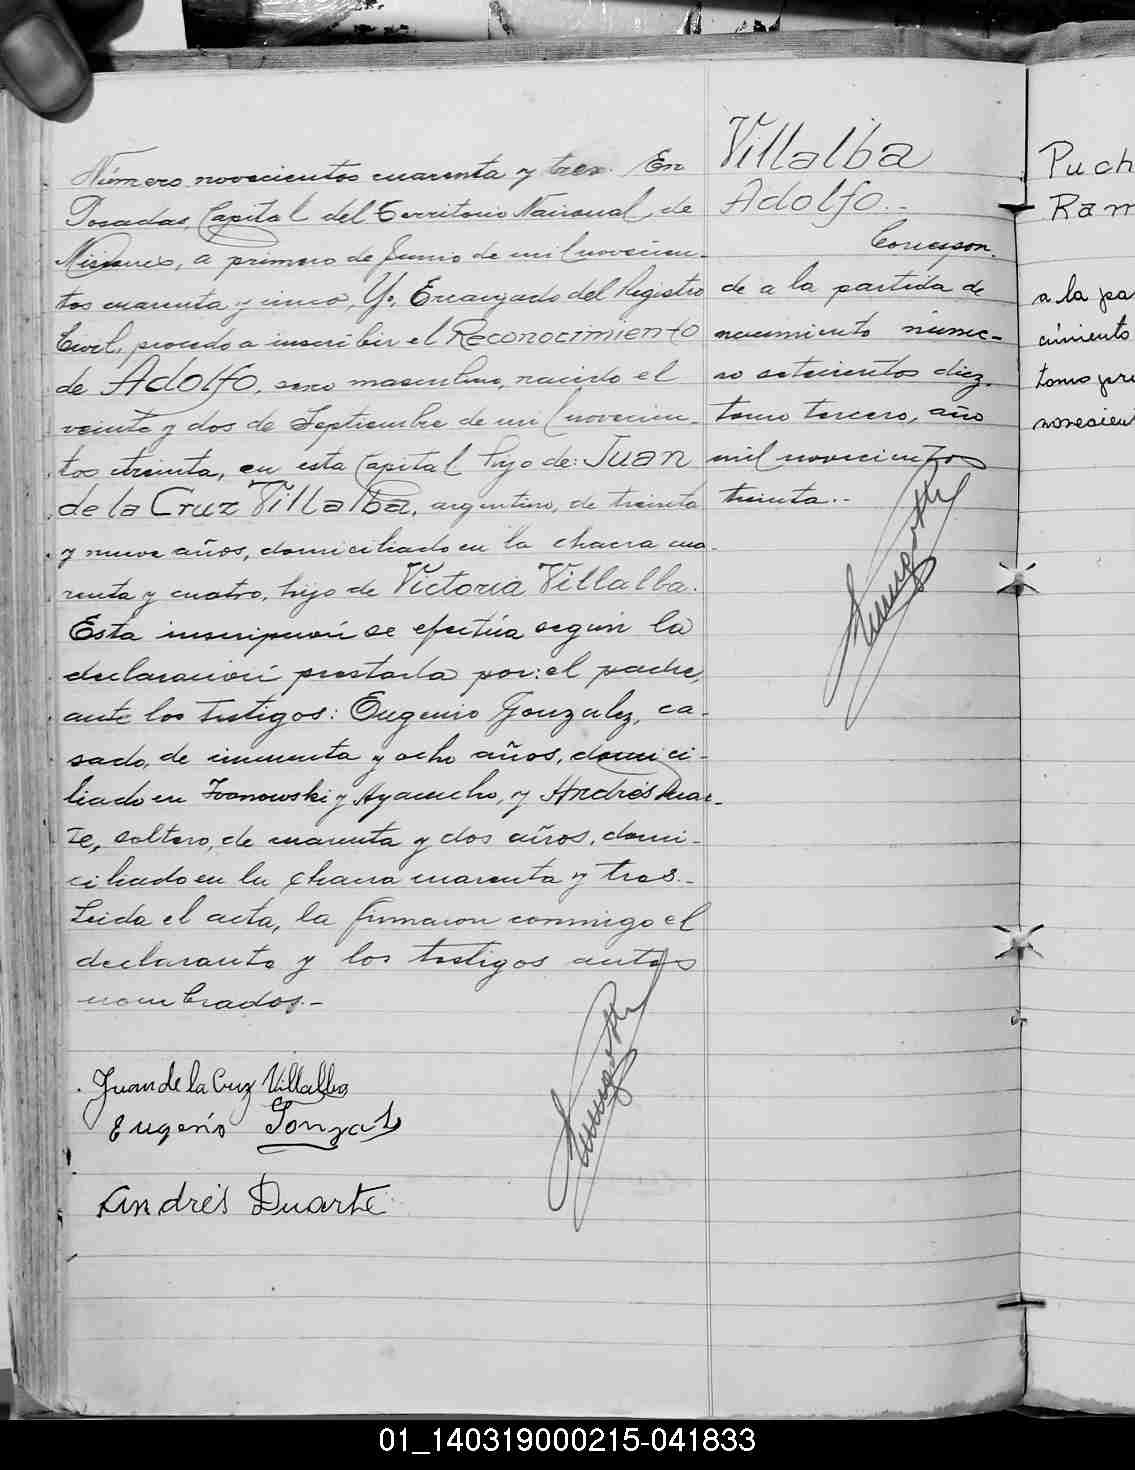 Número novecientos cuarenta y tres. En
Posadas, Capital del Territorio Nacional de
Misiones, a primero de Junio de mil novecien-
tos cuarenta y cinco, Yo, Encargado del Registro
Civil, procedo a inscribir el Reconocimiento
de Adolfo, sexo masculino, nacido el
veinte y dos de Septiembre de mil novecien-
tos treinta, en esta Capital hijo de: Juan
de la Cruz Villalba, argentino, de treinta
y nueve años, domiciliado en la chacra cua-
renta y cuatro, hijo de Victoria Villalba.
Esta inscripción se efectúa según la
declaración prestada por: el padre,
ante los testigos: Eugenio Gonzalez, ca-
sado, de cincuenta y ocho años, domici-
liado en Ivanowski y Ayacucho, y Andrés Duar-
te, soltero, de cuarenta y dos años, domi-
ciliado en la chacra cuarenta y tres.-
Leida el acta, la firmaron conmigo el
declarante y los testigos antes
nombrados.-
Juan de la Cruz Villalba
Eugenio Gonzalez
Andrés Duarte
Villalba
Adolfo.-
Correspon-
de a la partida de
nacimiento núme-
ro setecientos diez,
tomo tercero, año
mil novecientos
treinta.-
Puch
Ram
a la pa
cimiento
tomo pri
novecien
01_140319000215-041833